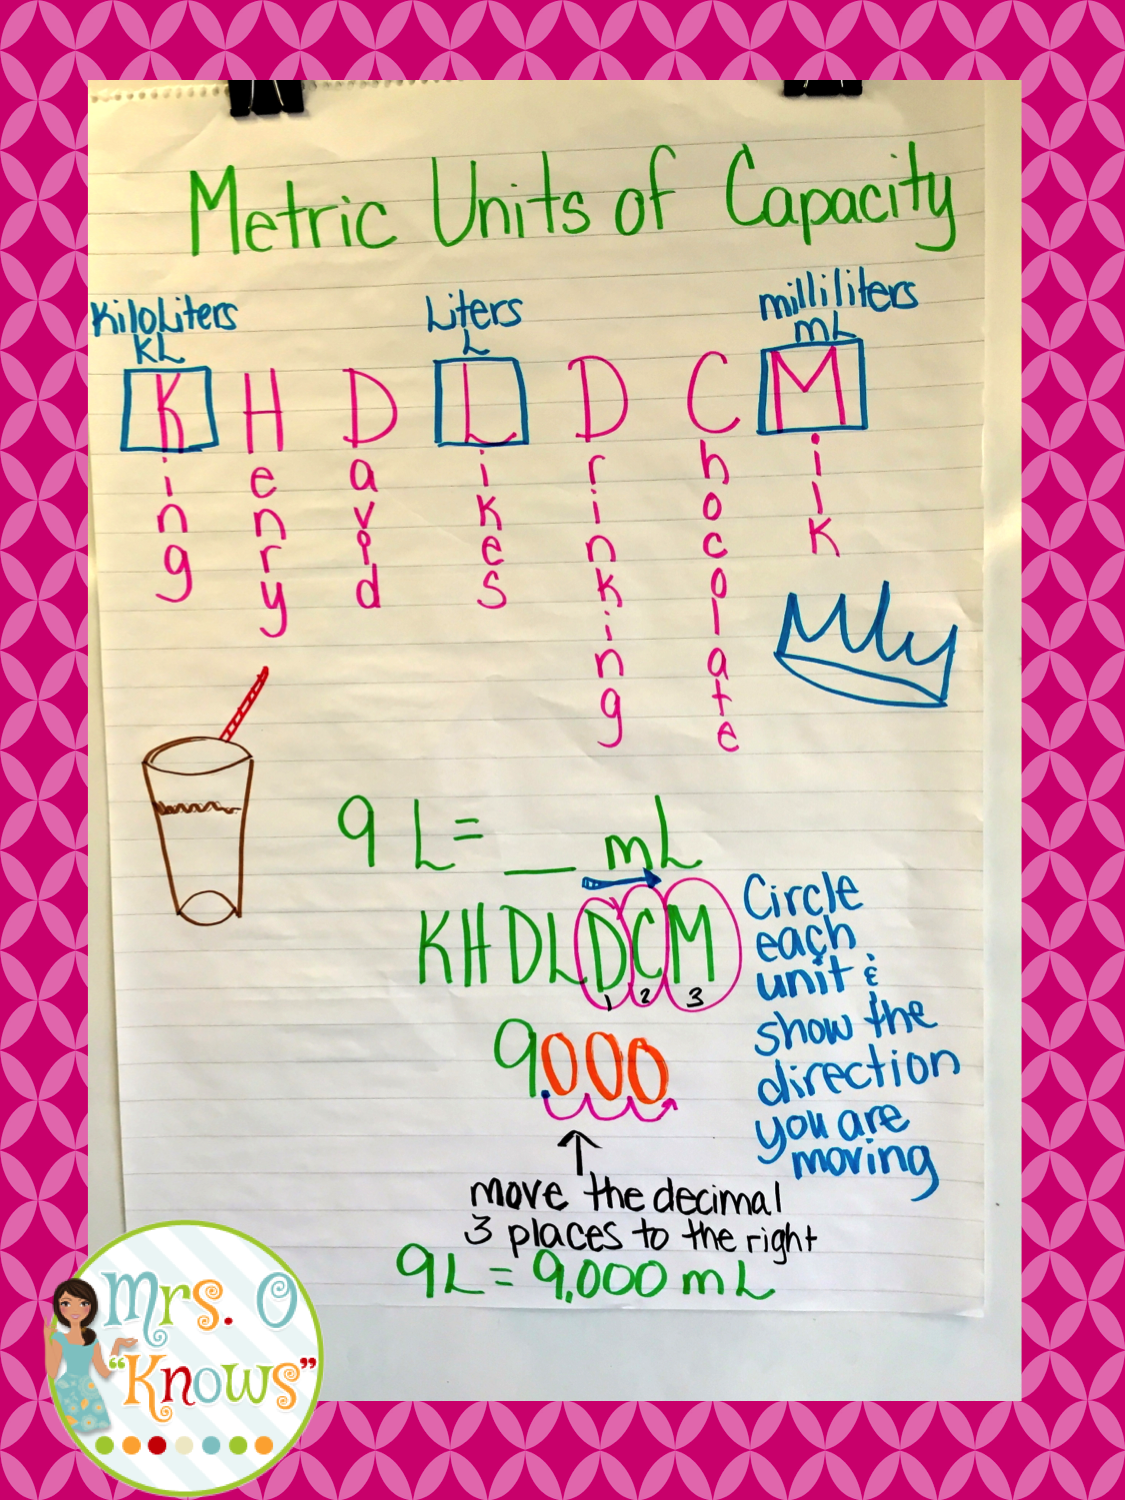 Metric Units of Capacity
KiloLiters
KL
Liters
L
milliliters
mL
King
Henry
David
Likes
Drinking
Chocolate
Milk
9 L = __ mL
KHDLDCM
1 2 3
9.000
Circle
each
unit &
show the
direction
you are
moving
move the decimal
3 places to the right
9L = 9,000 mL
Mrs. O
"Knows"